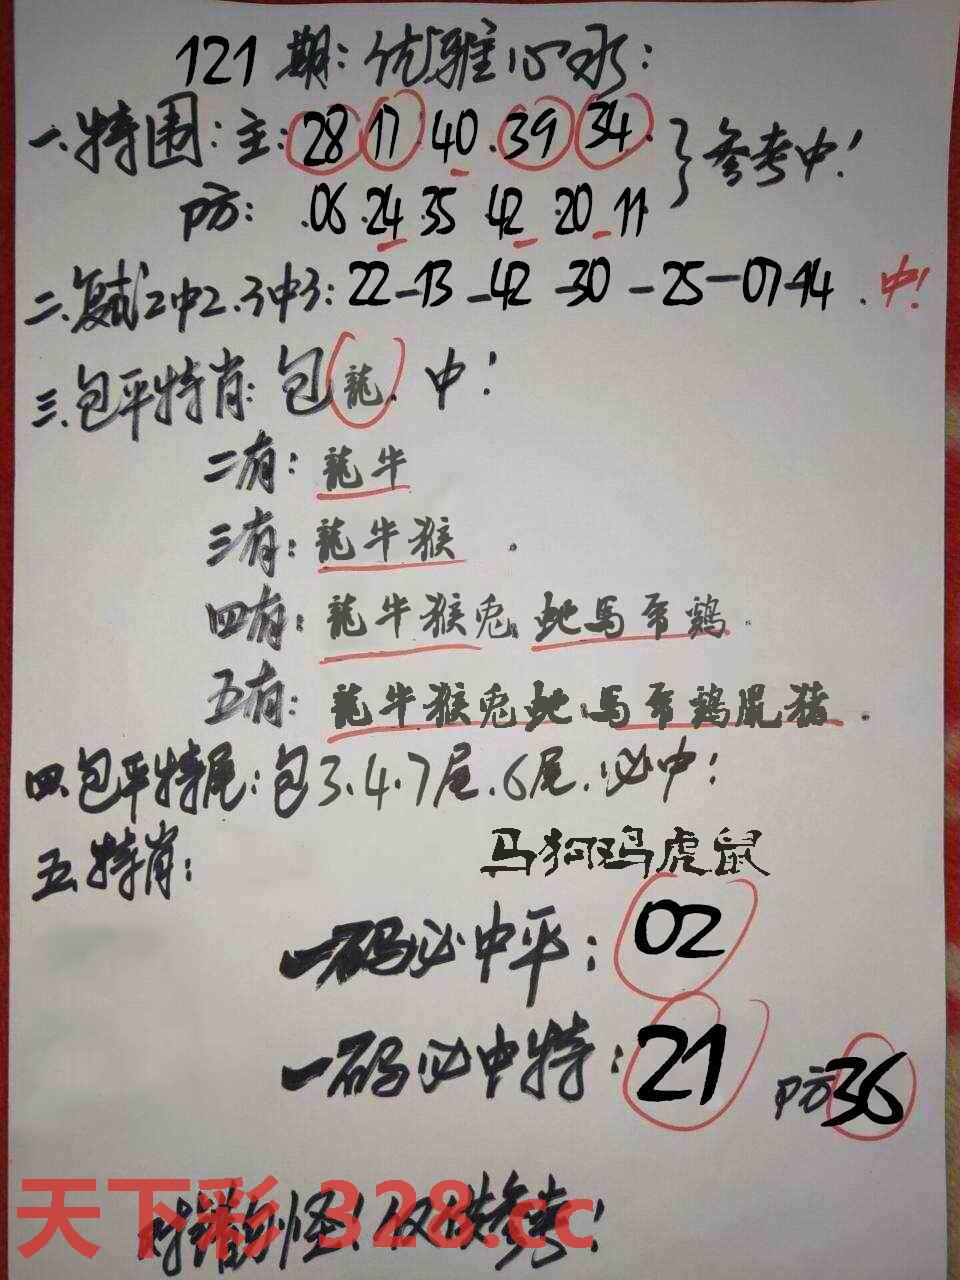 121期:优雅心水:
一.特围:主:28 17 40.39 34. }参考中!
防:.06.24 35 42 20 11
二.复式2中2.3中3:22-13-42-30-25-07-14.中!
三.包平特肖:包龍.中!
二有:龍牛
三有:龍牛猴.
四有:龍牛猴兎蛇馬羊鶏.
五有:龍牛猴兎蛇馬羊鶏鼠猪.
四.包平特尾:包3.4.7尾.6尾.必中!
五.特肖:马狗鸡虎鼠
一码必中平:02
一码必中特:21 防36
对错勿怪!仅供参考!
天下彩 328.cc